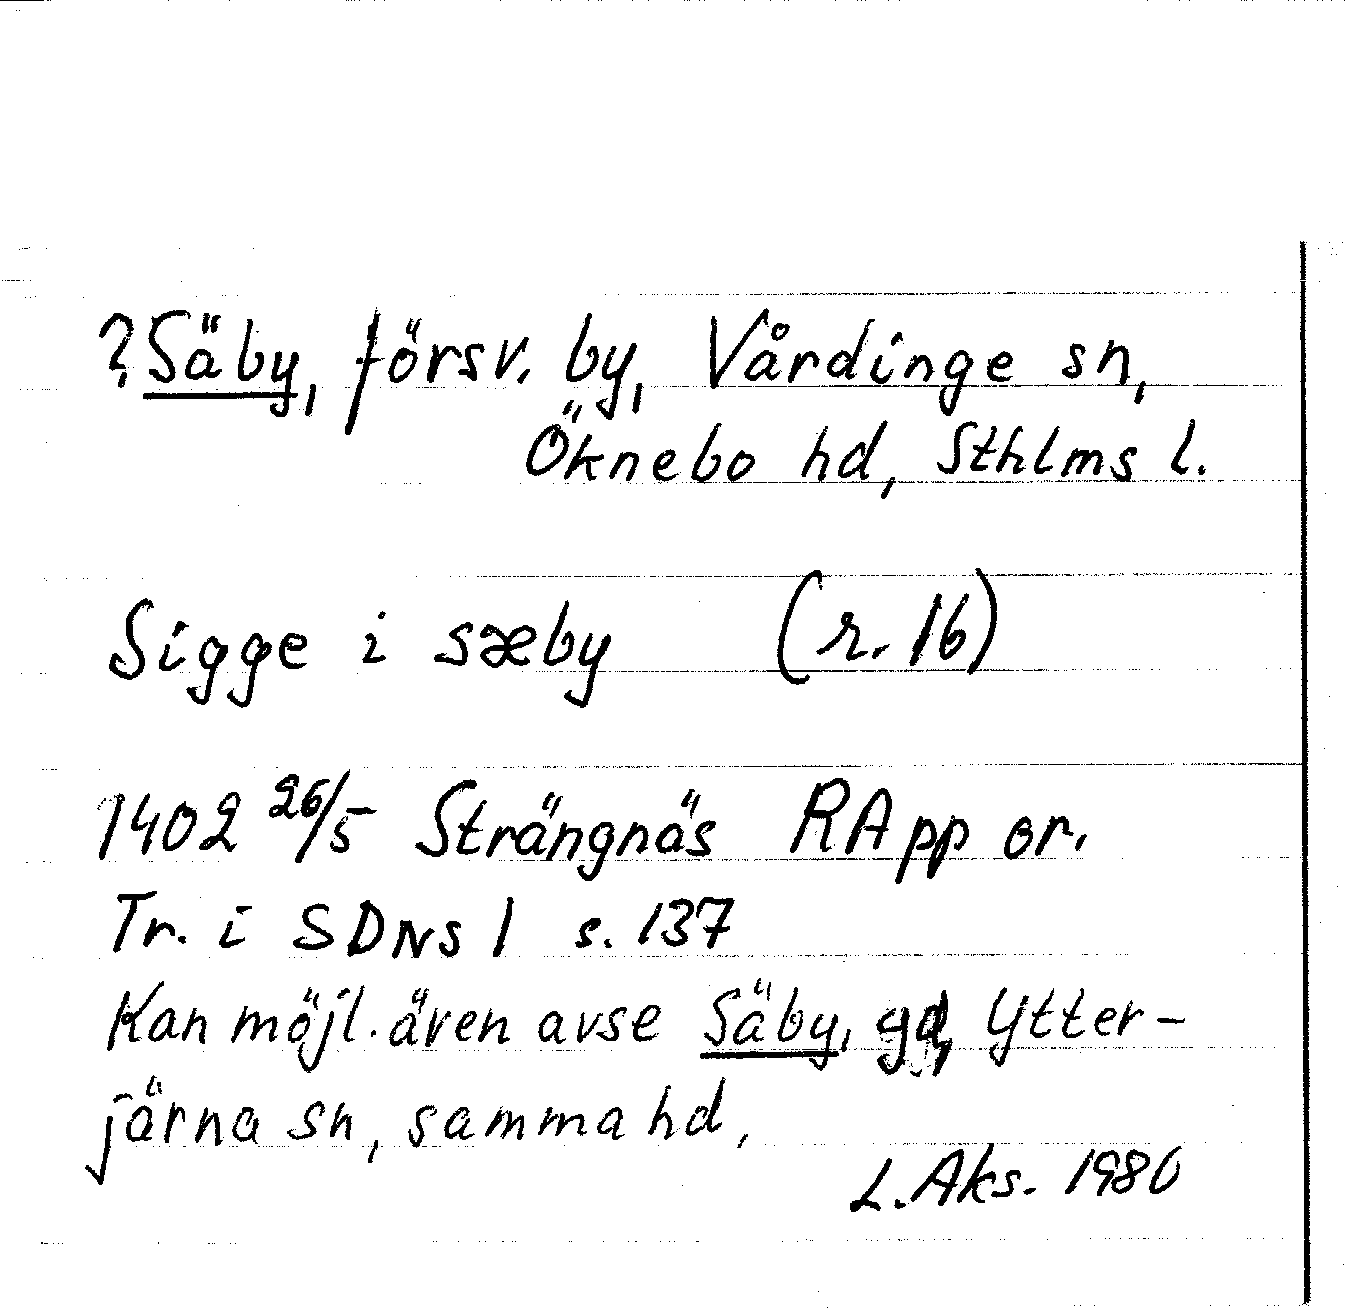 ?Säby, försv. by, Vårdinge sn,
Öknebo hd, Sthlms l.
Sigge i sæby (r. 16)
1402 26/5 Strängnäs RApp or.
Tr. i SDNS 1 s. 137
Kan möjl. även avse Säby, gd, Ytter-
järna sn, samma hd,
L. Aks. 1980